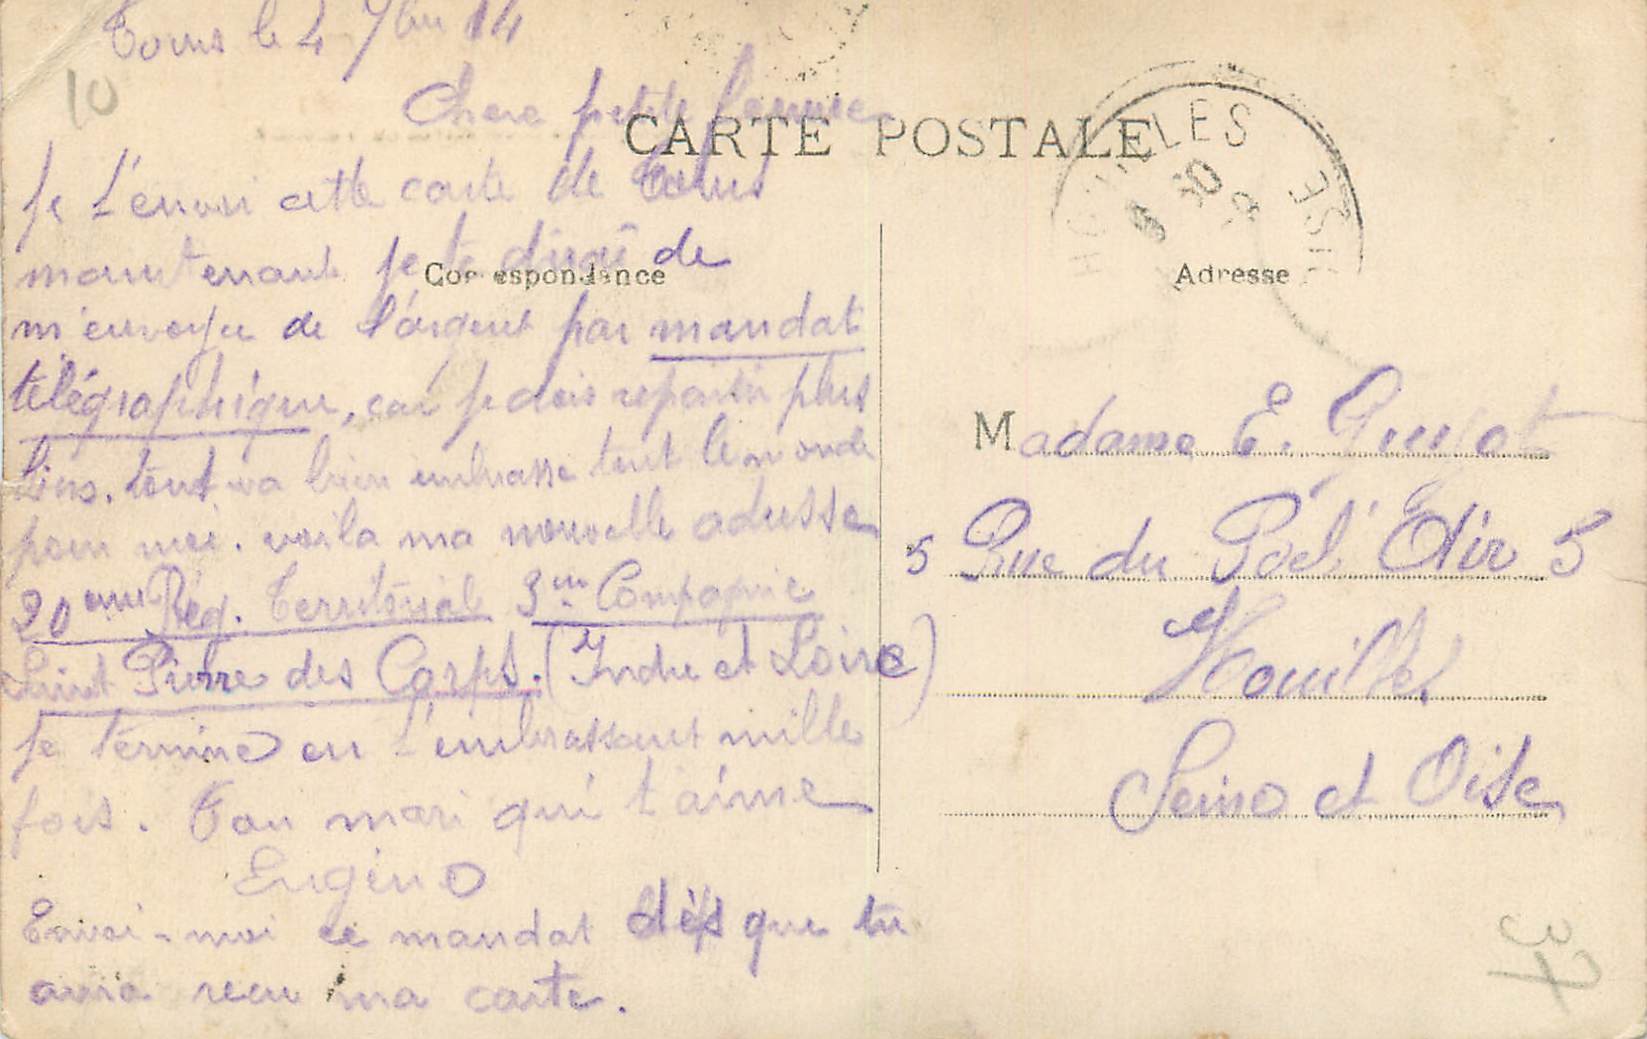 Tours le 4 7bre 14
10
Chere petite femme
CARTE POSTALE
Je t'envoi cette carte de Tours
maintenant je te dirai de
Correspondance
m'envoyer de l'argent par mandat
télégraphique, car je dois repartir plus
loins. tout va bien embrasse tout le monde
pour moi. voila ma nouvelle adresse
Rég. Territorial 3me Compagnie
Saint Pierre des Corps. (Indre et Loire)
Je termine en t'embrassant mille
fois. Ton mari qui t'aime
Eugène
Envoi-moi ce mandat dès que tu
aura recu ma carte.
HOUILLES
OISE
Adresse
Madame E. Guyot
5 Rue du Bel Air 5
Houilles
Seine et Oise
37